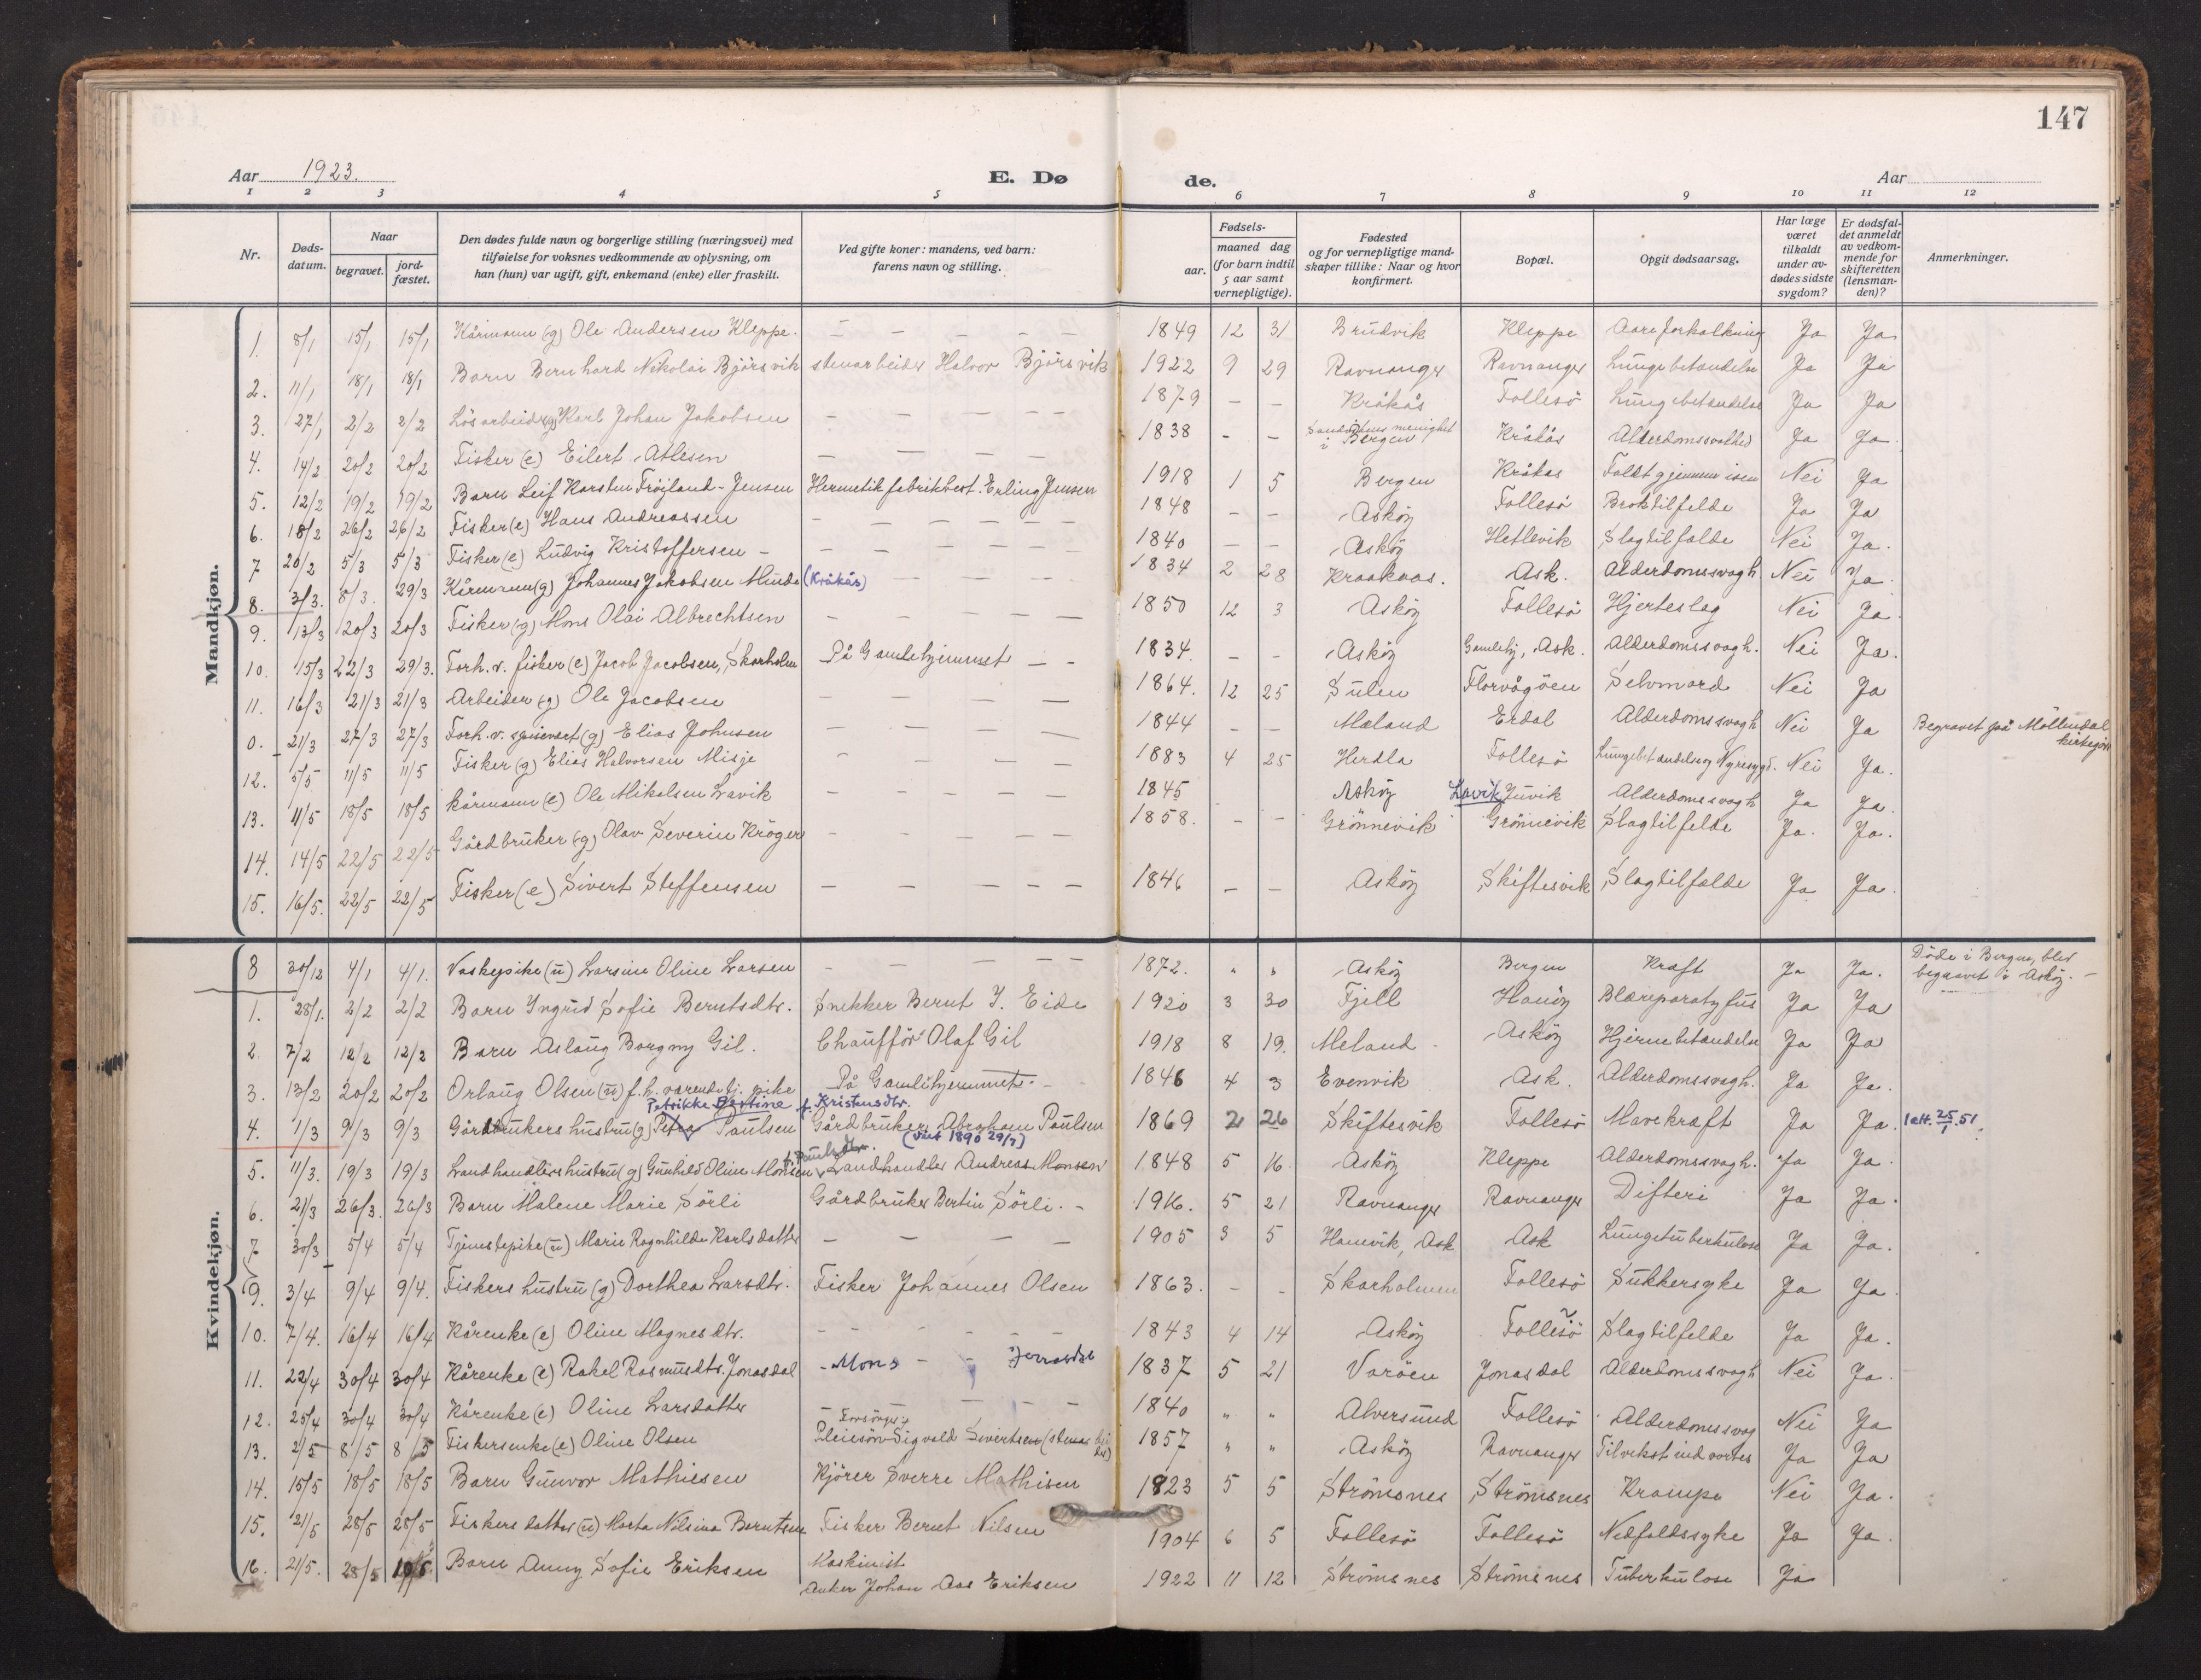 147
Aar 1923. E. Dø de. Aar
1 2 3 4 5 6 7 8 9 10 11 12
Nr. Døds-datum. Naar begravet. jord-fæstet. Den dødes fulde navn og borgerlige stilling (næringsvei) med tilføielse for voksnes vedkommende av oplysning, om han (hun) var ugift, gift, enkemand (enke) eller fraskilt. Ved gifte koner: mandens, ved barn: farens navn og stilling. Fødsels- aar. maaned dag (for barn indtil 5 aar samt vernepligtige). Fødested og for vernepligtige mand-skaper tillike: Naar og hvor konfirmert. Bopæl. Opgit dødsaarsag. Har læge været tilkaldt under av-dødes sidste sygdom? Er dødsfal-det anmeldt av vedkom-mende for skifteretten (lensman-den)? Anmerkninger.
Mandkjøn.
1. 8/1 15/1 15/1 Kårmann (g) Ole Andersen Kleppe. – – – – – 1849 12 31 Brudvik Kleppe Aareforkalkning Ja Ja
2. 11/1 18/1 18/1 Barn Bernhard Nikolai Björsvik stenarbeider Halvor Björsvik 1922 9 29 Ravnanger Ravnanger Lungebetændelse Ja Ja
3. 27/1 2/2 2/2 Lösarbeider (g) Karl Johan Jakobsen – – – – – 1879 – – Kråkås Follesö Lungebetændelse Ja Ja
4. 14/2 20/2 20/2 Fisker (e) Eilert Atlesen – – – – 1838 – – Sandvikens menighet i Bergen Kråkås Alderdomssvakhed Ja Ja
5. 12/2 19/2 19/2 Barn Leif Karsten Fröiland-Jensen Hermetikfabrikbest. Erling Jensen 1918 1 5 Bergen Kråkås Faldt gjennem isen Nei Ja
6. 18/2 26/2 26/2 Fisker (e) Hans Andreassen – – – – – 1848 – – Asköy Follesö Broktilfelde Ja Ja
7 20/2 5/3 5/3 Fisker (e) Ludvig Kristoffersen – – – – – – 1840 – – Asköy Hetlevik Slagtilfælde Nei Ja.
8. 3/3. 8/3. 29/3 Kårmann (g) Johannes Jakobsen Minde (Kråkås) – – – – 1834 2 28 Kraakaas. Ask. Alderdomssvagh Nei Ja.
9. 13/3 20/3 20/3 Fisker (g) Mons Olai Albrechtsen – – – – – 1850 12 3 Asköy Follesö Hjerteslag Nei Ja.
10. 15/3 22/3 29/3. Forh. v. fisker (e) Jacob Jacobsen, Skarholm På Gamlehjemmet – – 1834. – – Asköy Gamlehj, Ask. Alderdomssvagh. Nei Ja.
11. 16/3 21/3 21/3 Arbeider (g) Ole Jacobsen – – – – 1864. 12 25 Sulen Florvågöen Selvmord Nei Ja
0. 21/3 27/3 27/3 Elias Johnsen – – – – 1844 – – Mæland Erdal Alderdomssvagh Nei Ja Begravet på Möllendal kirkegård
12. 5/5 11/5 11/5 Fisker (g) Elias Halvorsen Misje – – – – – 1883 4 25 Herdla Follesö Lungebetændelse og Nyresygd. Nei Ja.
13. 11/5 18/5 18/5 Kårmann (e) Ole Mikalsen Lavik – – – – – 1845 – – Asköy Lavik Juvik Alderdomssvagh Ja Ja.
14. 14/5 22/5 22/5 Gårdbruker (g) Olav Severin Kröger – – – – – 1858. – – Grönnevik Grönnevik Slagtilfelde Ja. Ja.
15. 16/5. 22/5 22/5 Fisker (e) Sivert Steffensen – – – – – 1846 – – Asköy Skiftesvik Slagtilfælde Ja Ja.
Kvindekjøn.
8 30/12 4/1 4/1. Vaskepike (u) Larsine Oline Larsen – – – – – 1872. " " Asköy Bergen Kræft Ja Ja. Döde i Bergen, blev begravet i Asköy. –
1. 28/1. 2/2 2/2 Barn Ingrid Sofie Berntsdtr. Snekker Bernt J. Eide 1920 3 30 Fjell Hanöy Blæreparatyfus Ja Ja
2. 7/2 12/2 12/2 Barn Aslaug Borgny Gil. Chaufför Olaf Gil 1918 8 19. Meland Asköy Hjernebetændelse Ja Ja
3. 13/2 20/2 20/2 Orlaug Olsen (u) f.h. værende tj. pike På Gamlehjemmet. – 1846 4 3 Evenvik Ask. Alderdomssvagh. Ja Ja.
Petrikke Bertine f. Kristensdtr.
4. 1/3 9/3 9/3 Gårdbrukers hustru (g) Petra Paulsen Gårdbruker Abraham Paulsen 1869 2 26 Skiftesvik Follesö Mavekræft Ja Ja. 25/1.51.
f. Paulsdtr. (vist 1890 29/7)
5. 11/3. 19/3 19/3 Landhandlers hustru (g) Gunhild Oline Monsen Landhandler Andreas Monsen 1848 5 16. Asköy Kleppe Alderdomssvagh. Ja Ja.
6. 21/3 26/3. 26/3 Barn Malene Marie Sörli Gårdbruker Bertin Sörli. – 1916. 5 21 Ravnanger Ravnanger Difteri Ja Ja.
7 30/3 5/4 5/4 Tjenestepike (u) Marie Ragnhilda Karlsdatter – – – – 1905 3 5 Hanevik, Ask Ask Lungetuberkulose Ja Ja.
9. 3/4 9/4 9/4. Fiskers hustru (g) Dorthea Larsdtr. Fisker Johannes Olsen 1863. – – Skarholmen Follesö Sukkersyke Ja Ja.
10. 7/4. 16/4 16/4 Kårenke (e) Oline Magnesdtr. – – – – – 1843 4 14 Asköy Follesö Slagtilfelde Ja Ja.
11. 22/4 30/4 30/4 Kårenke (e) Rakel Rasmusdtr. Jonasdal – Mons – – 1837 5 21 Varöen Jonasdal Alderdomssvagh Nei Ja.
12. 25/4 30/4 30/4 Kårenke (e) Oline Larsdatter – – – – – 1840 " " Alversund Follesö Alderdomssvag Nei Ja
13. 2/5 8/5 8/5 Fiskersenke (e) Oline Olsen Forsörger: Pleiesön Sigvald Sivertsen (stenarbeider) 1857 " " Asköy Ravnanger Tilvekst indvortes Ja Ja
14. 15/5 18/5 18/5 Barn Gunvor Mathiesen Kjörer Sverre Mathisen 1923 5 5 Strömsnes Strömsnes Krampe Nei Ja.
15. 21/5 28/5 28/5 Fiskers datter (u) Marta Nilsina Berntsen Fisker Bernt Nilsen 1904 6 5 Follesö Follesö Nedfaldssyke Ja Ja.
16. 21/5. 28/5 Barn Anny Sofie Eriksen Maskinist Anker Johan Aas Eriksen 1922 11 12 Strömsnes Strömsnes Tuberkulose Ja